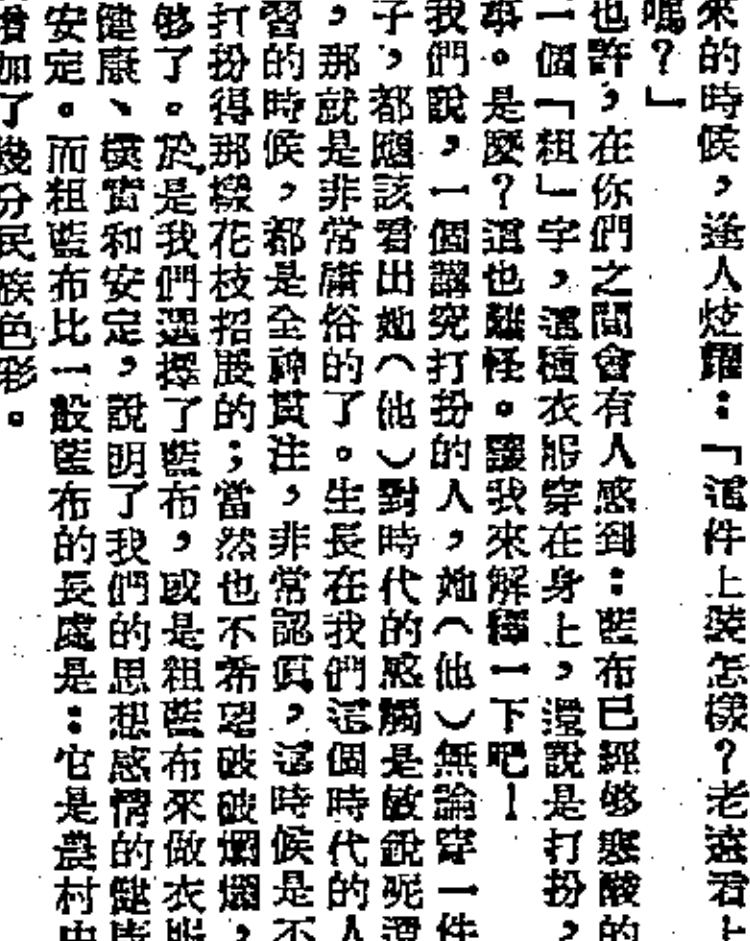 來的時候，逢人炫耀：「這件上裝怎樣？老遠看上
嗎？」
也許，在你們之間會有人感到：藍布已經够寒酸的
一個「粗」字，這種衣服穿在身上，還說是打扮，
事。是麼？這也難怪。讓我來解釋一下吧！
我們說，一個講究打扮的人，她（他）無論穿一件
子，都應該看出她（他）對時代的感觸是敏銳呢還
，那就是非常庸俗的了。生長在我們這個時代的人
習的時候，都是全神貫注，非常認眞，這時候是不
打扮得那般花枝招展的；當然也不希望破破爛爛，
够了。於是我們選擇了藍布，或是粗藍布來做衣服
健康、樸實和安定，說明了我們的思想感情的健康
安定。而粗藍布比一般藍布的長處是：它是農村中
增加了幾分民族色彩。